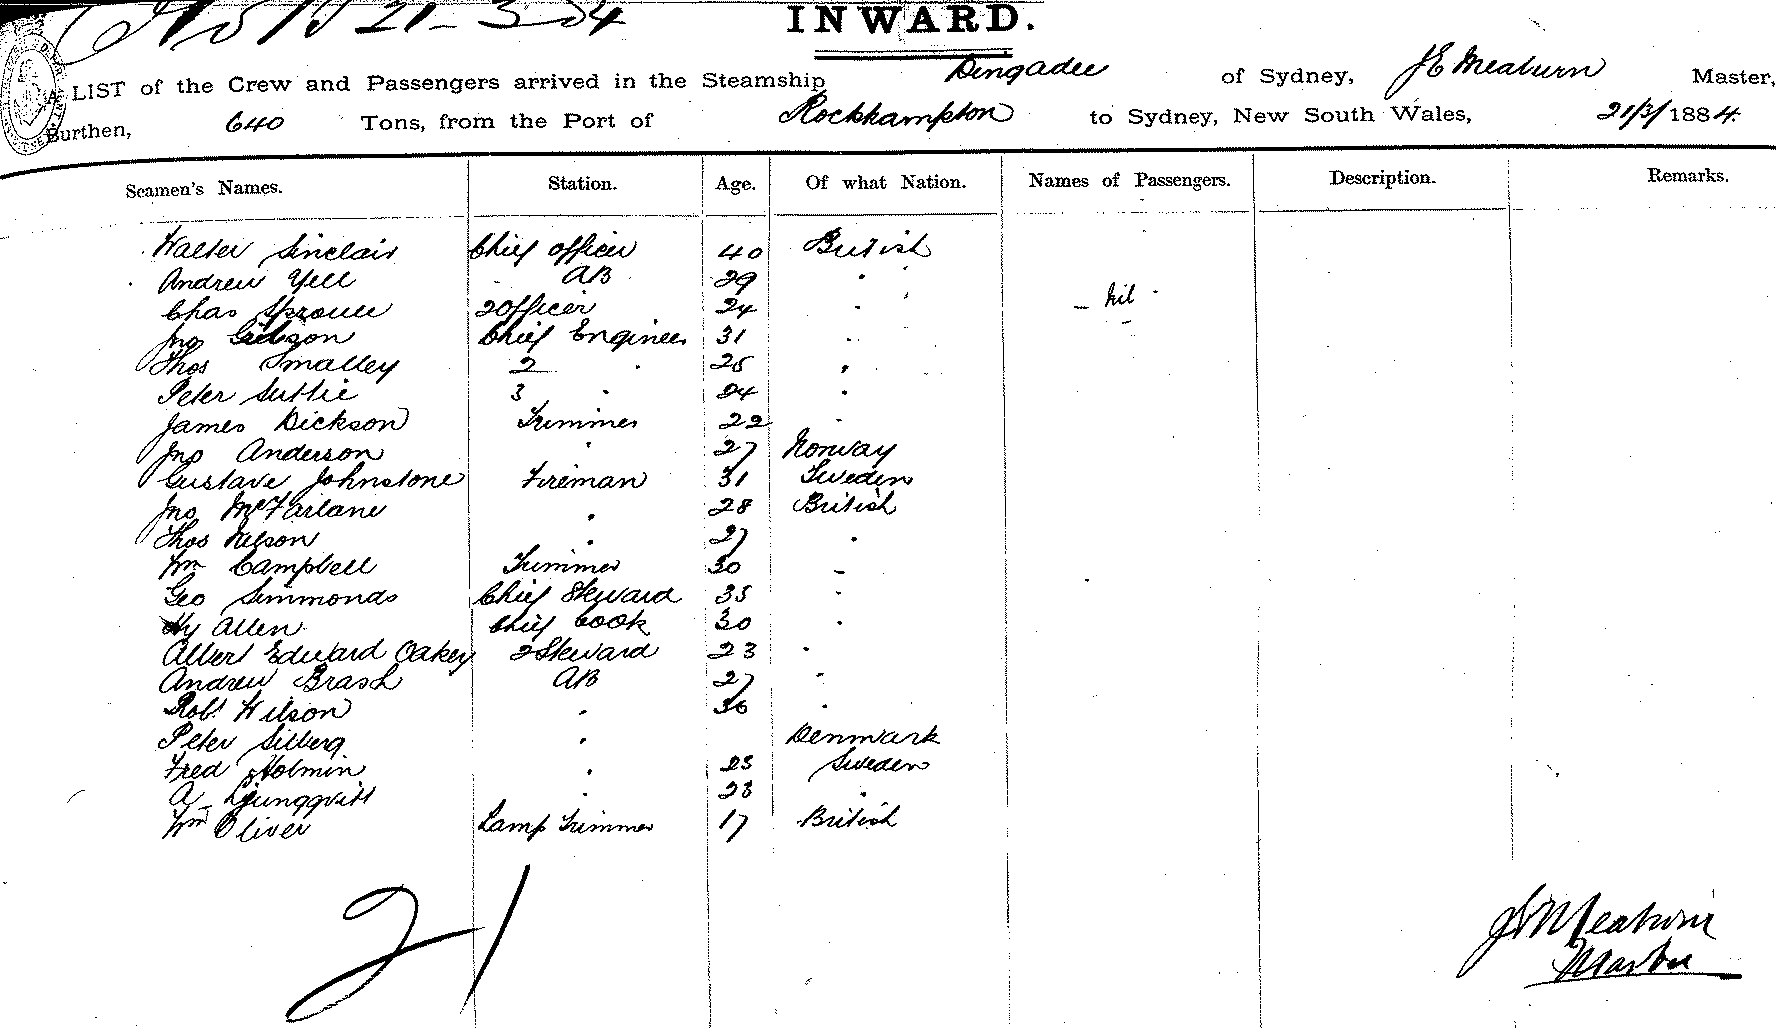 21-3-84
INWARD.
A LIST of the Crew and Passengers arrived in the Steamship Dingadee of Sydney, J E Meaburn Master,
Burthen, 640 Tons, from the Port of Rockhampton to Sydney, New South Wales, 21/3/1884.
Seamen's Names. Station. Age. Of what Nation. Names of Passengers. Description. Remarks.
Walter Sinclair Chief officer 40 British
Andrew Yell AB 29 "
Chas Sproule 2 Officer 24 " - Nil -
Jno Gibson Chief Engineer 31 "
Thos Smalley 2 " 25 "
Peter Suttie 3 " 24 "
James Dickson Trimmer 22 "
Jno Anderson " 27 Norway
Gustave Johnstone Fireman 31 Sweden
Jno McFarlane " 28 British
Thos Nelson " 27 "
Wm Campbell Trimmer 30 "
Geo Simmonds Chief Steward 35 "
Hy Allen Chief Cook 30 "
Albert Edward Oakey 2 Steward 23 "
Andrew Brash AB 27 "
Robt Wilson " 36 "
Peter Silberg " Denmark
Fred Holmin " 23 Sweden
A Ljungqvist " 28 "
Wm Oliver Lamp Trimmer 17 British
21
J E Meaburn
Master